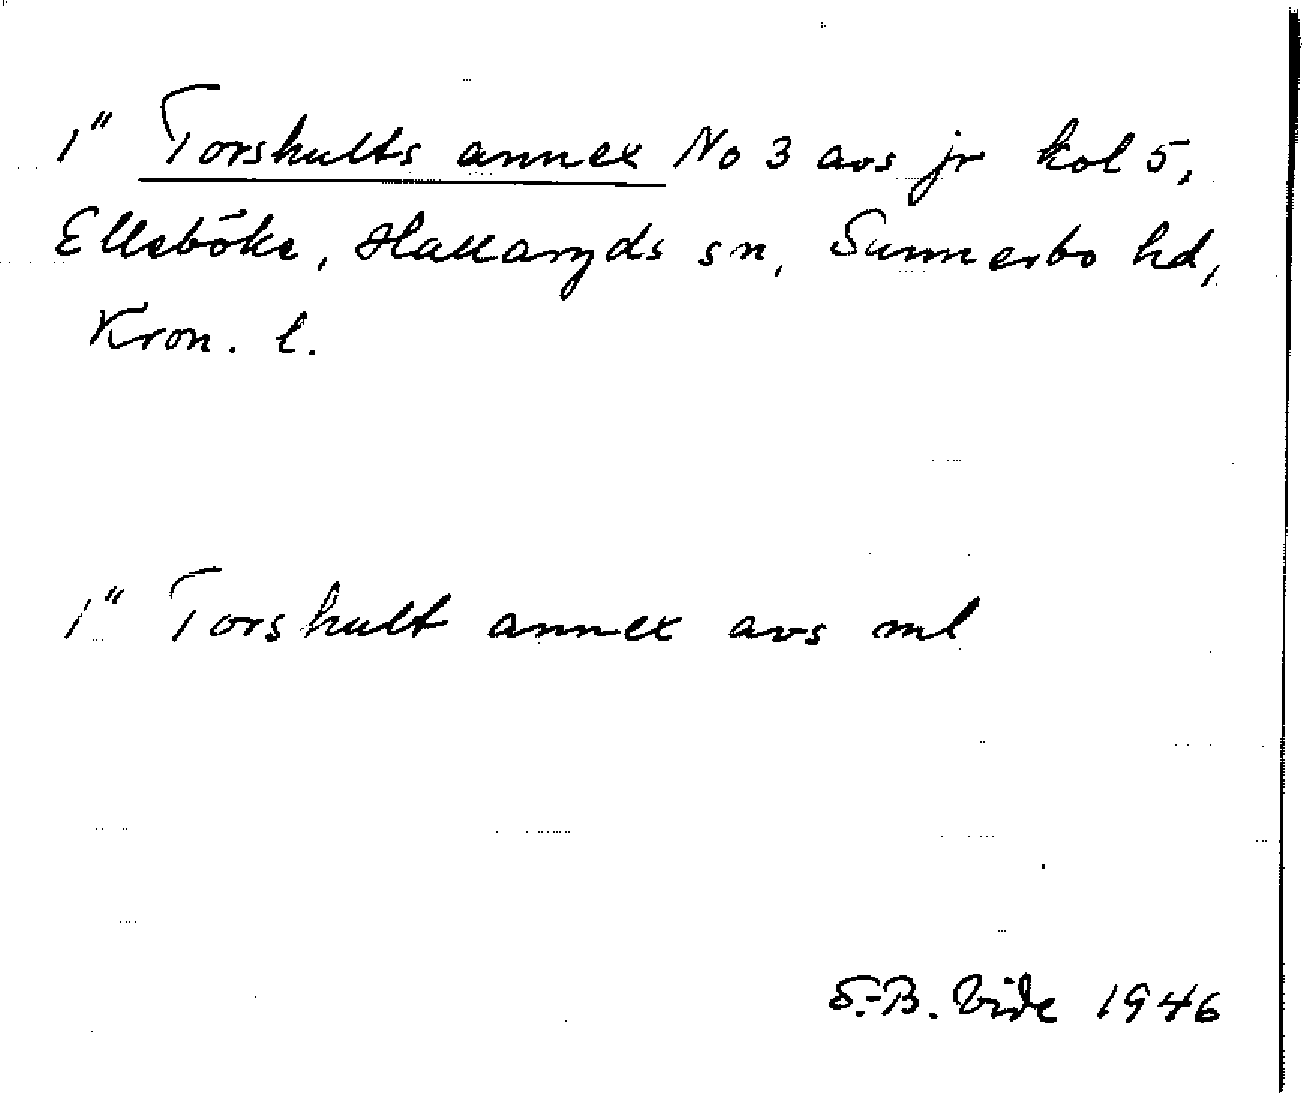 1" Torshults annex No 3 avs jr kol 5,
Ellsböke, Hallaryds sn, Sunnerbo hd,
Kron. l.
1" Torshult annex avs ml
S.-B. Vide 1946